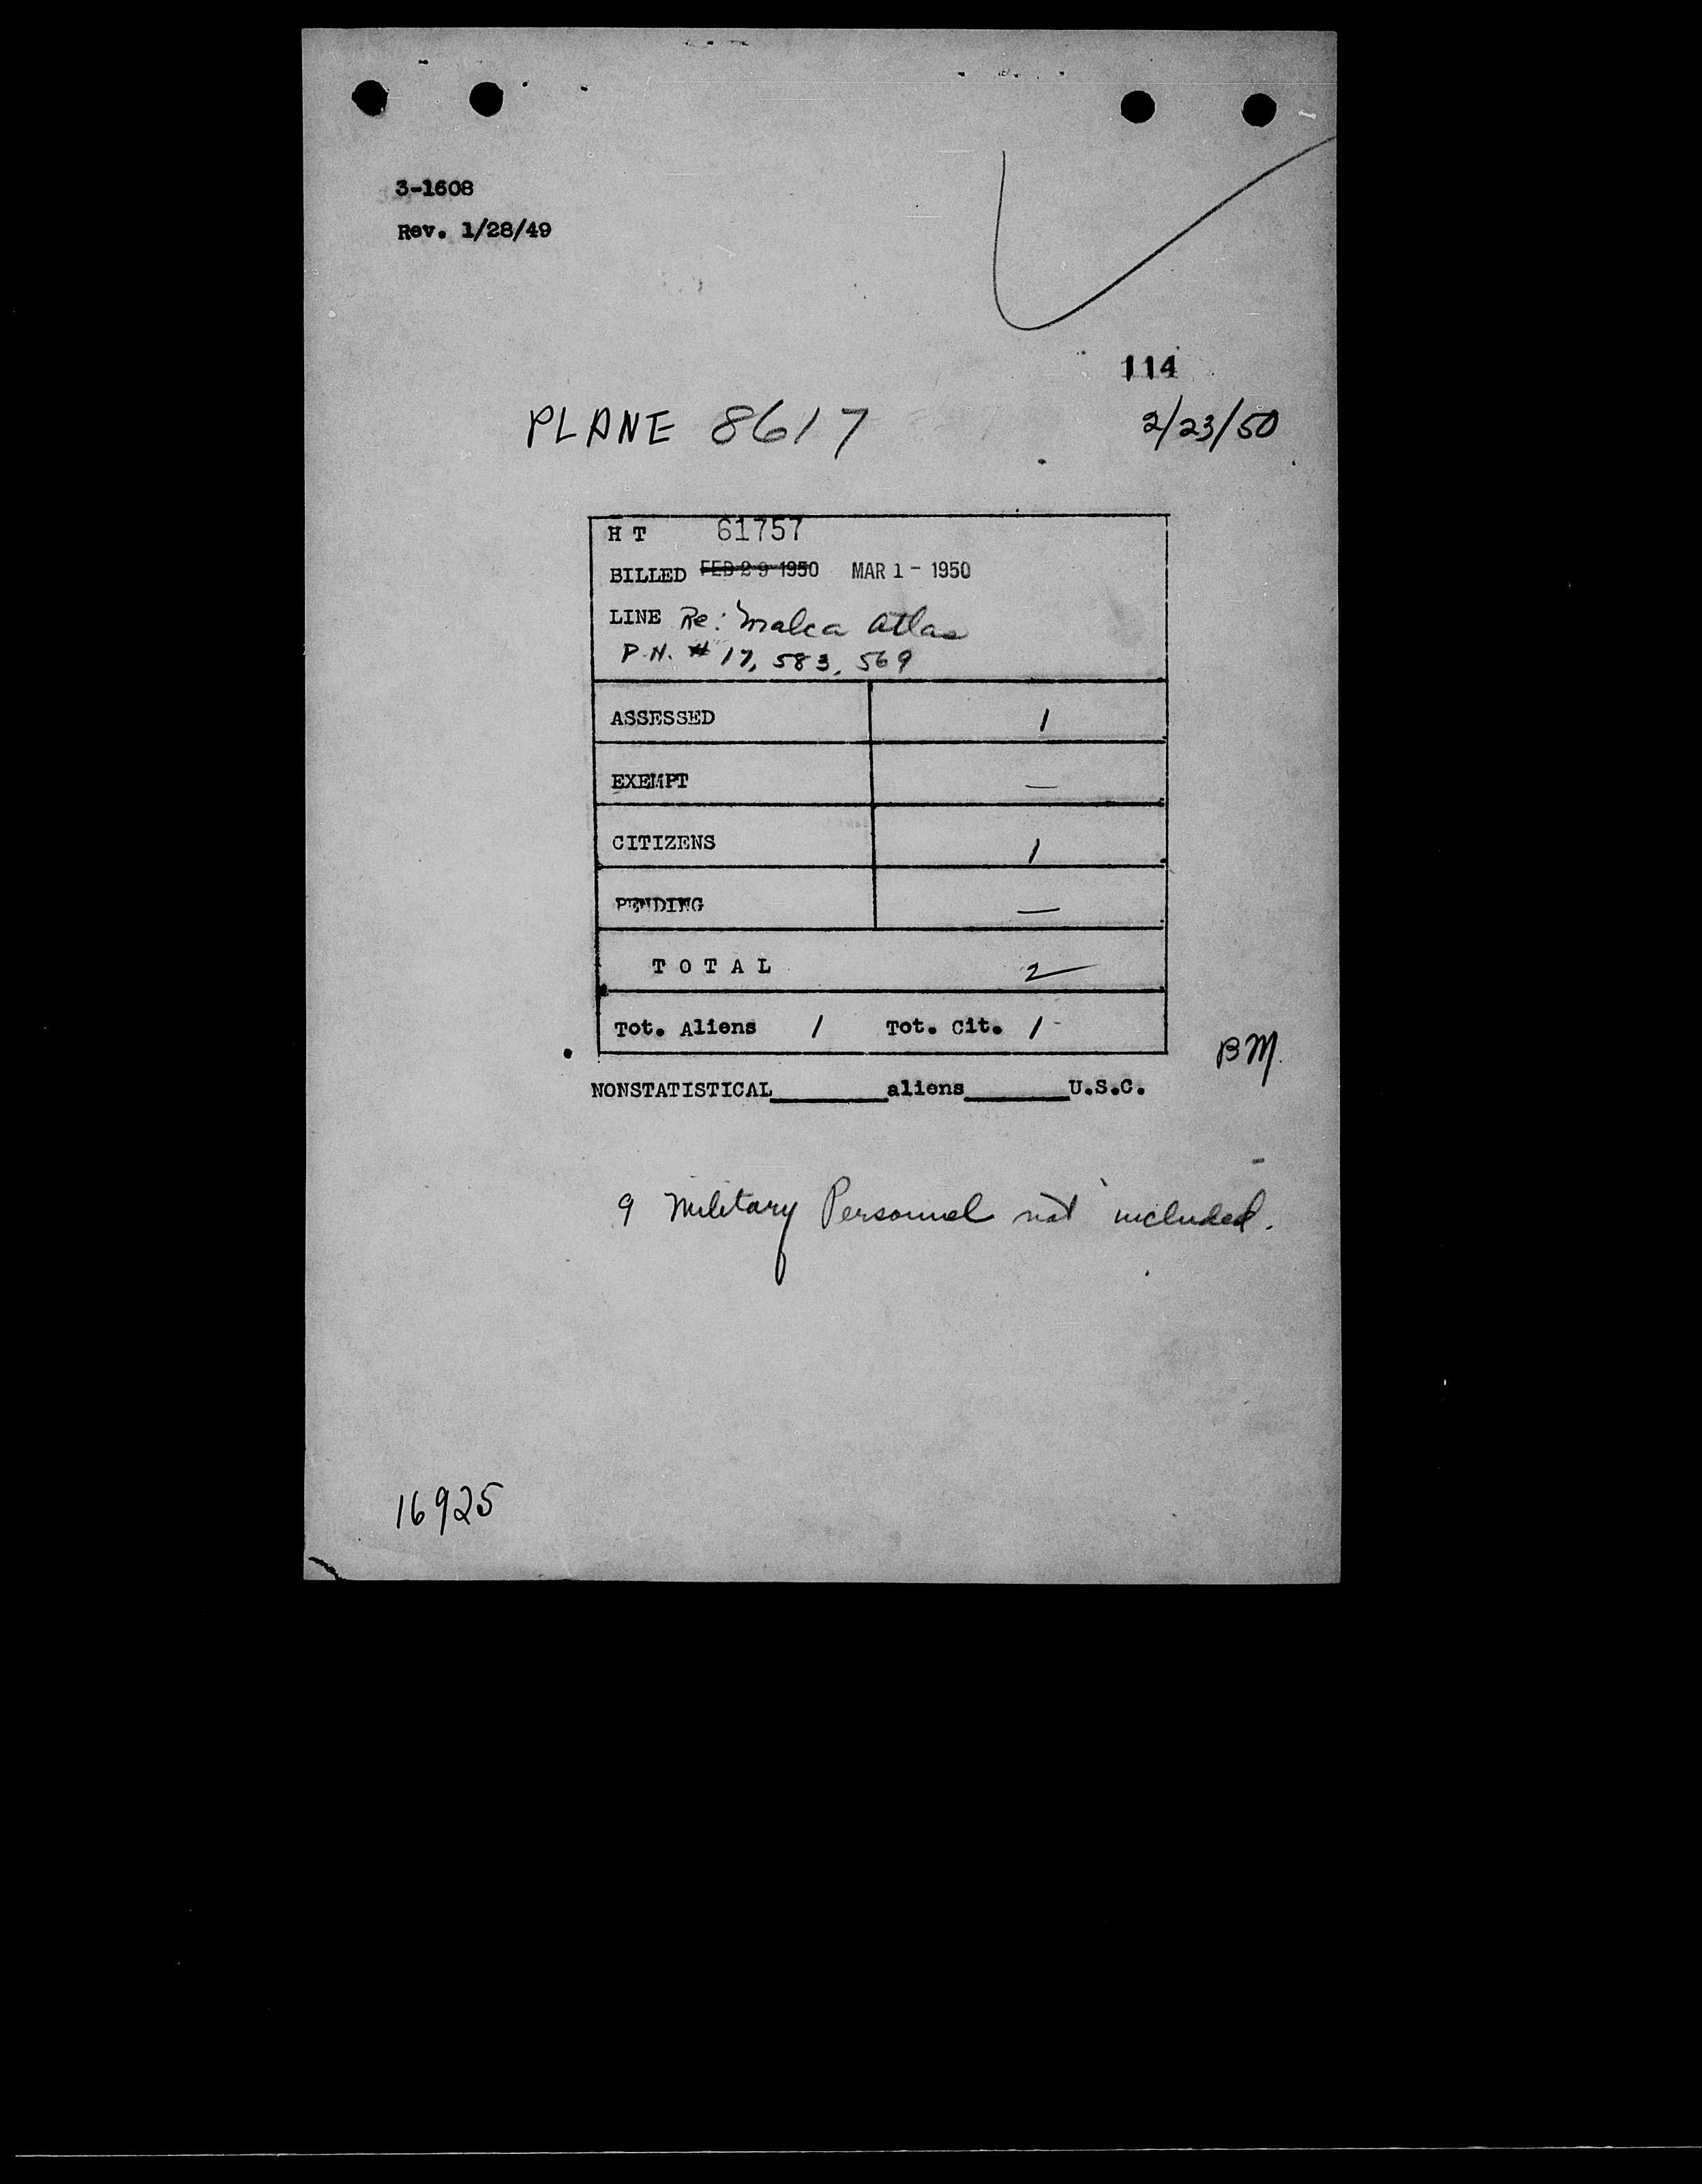 3-1608
Rev. 1/28/49
114
PLANE 8617 2/23/50
H T 61757
BILLED FEB 29 1950 MAR 1 - 1950
LINE Re: Malca Atlas
P.N. # 17, 583, 569
ASSESSED 1
EXEMPT —
CITIZENS 1
PENDING —
T O T A L 2
Tot. Aliens 1 Tot. Cit. 1 -
BM.
NONSTATISTICAL________aliens________U.S.C.
9 Military Personnel not included.
16925